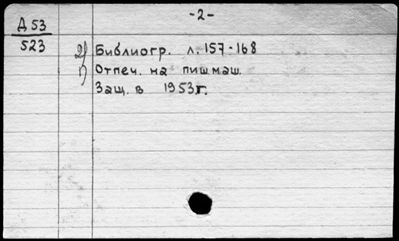 -2-
Д 53
523
2) Библиогр. л. 157-168
1) Отпеч. на пишмаш.
Защ. в 1953г.